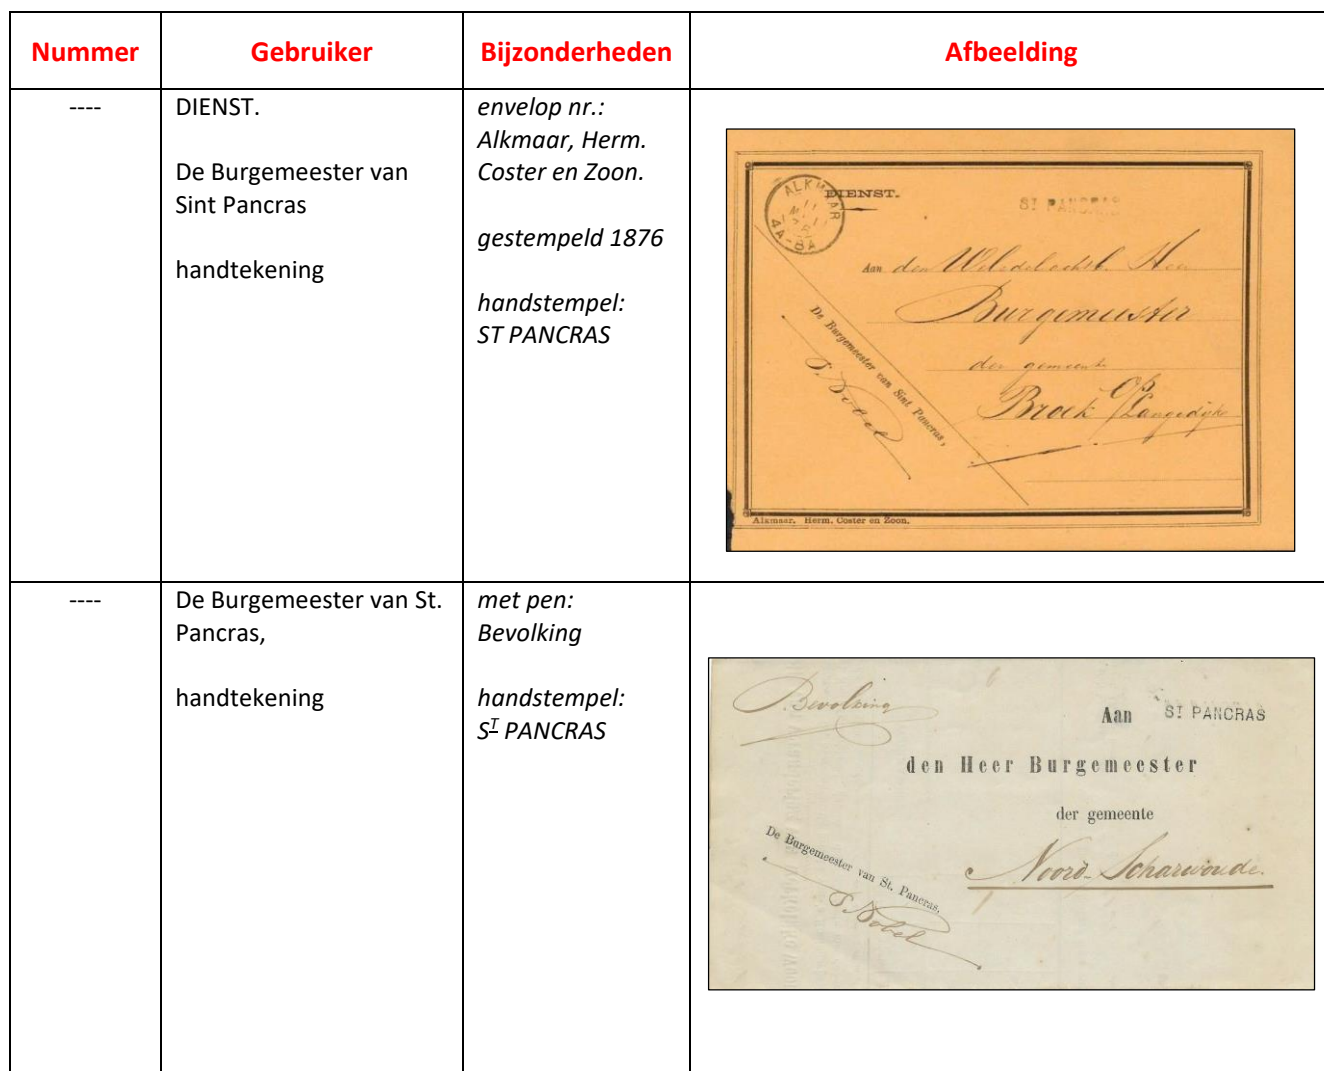 Nummer Gebruiker Bijzonderheden Afbeelding
---- DIENST.
De Burgemeester van
Sint Pancras
handtekening
envelop nr.:
Alkmaar, Herm.
Coster en Zoon.
gestempeld 1876
handstempel:
ST PANCRAS
ALKMAAR
4A-8A
DIENST.
ST PANCRAS
Aan den Weledelachtb. Heer
Burgemeester
der gemeente
Broek o/p Langedijk
De Burgemeester van Sint Pancras,
P. Nobel
Alkmaar. Herm. Coster en Zoon.
---- De Burgemeester van St.
Pancras,
handtekening
met pen:
Bevolking
handstempel:
ST PANCRAS
Bevolking
Aan ST PANCRAS
den Heer Burgemeester
der gemeente
Noord-Scharwoude.
De Burgemeester van St. Pancras,
P. Nobel